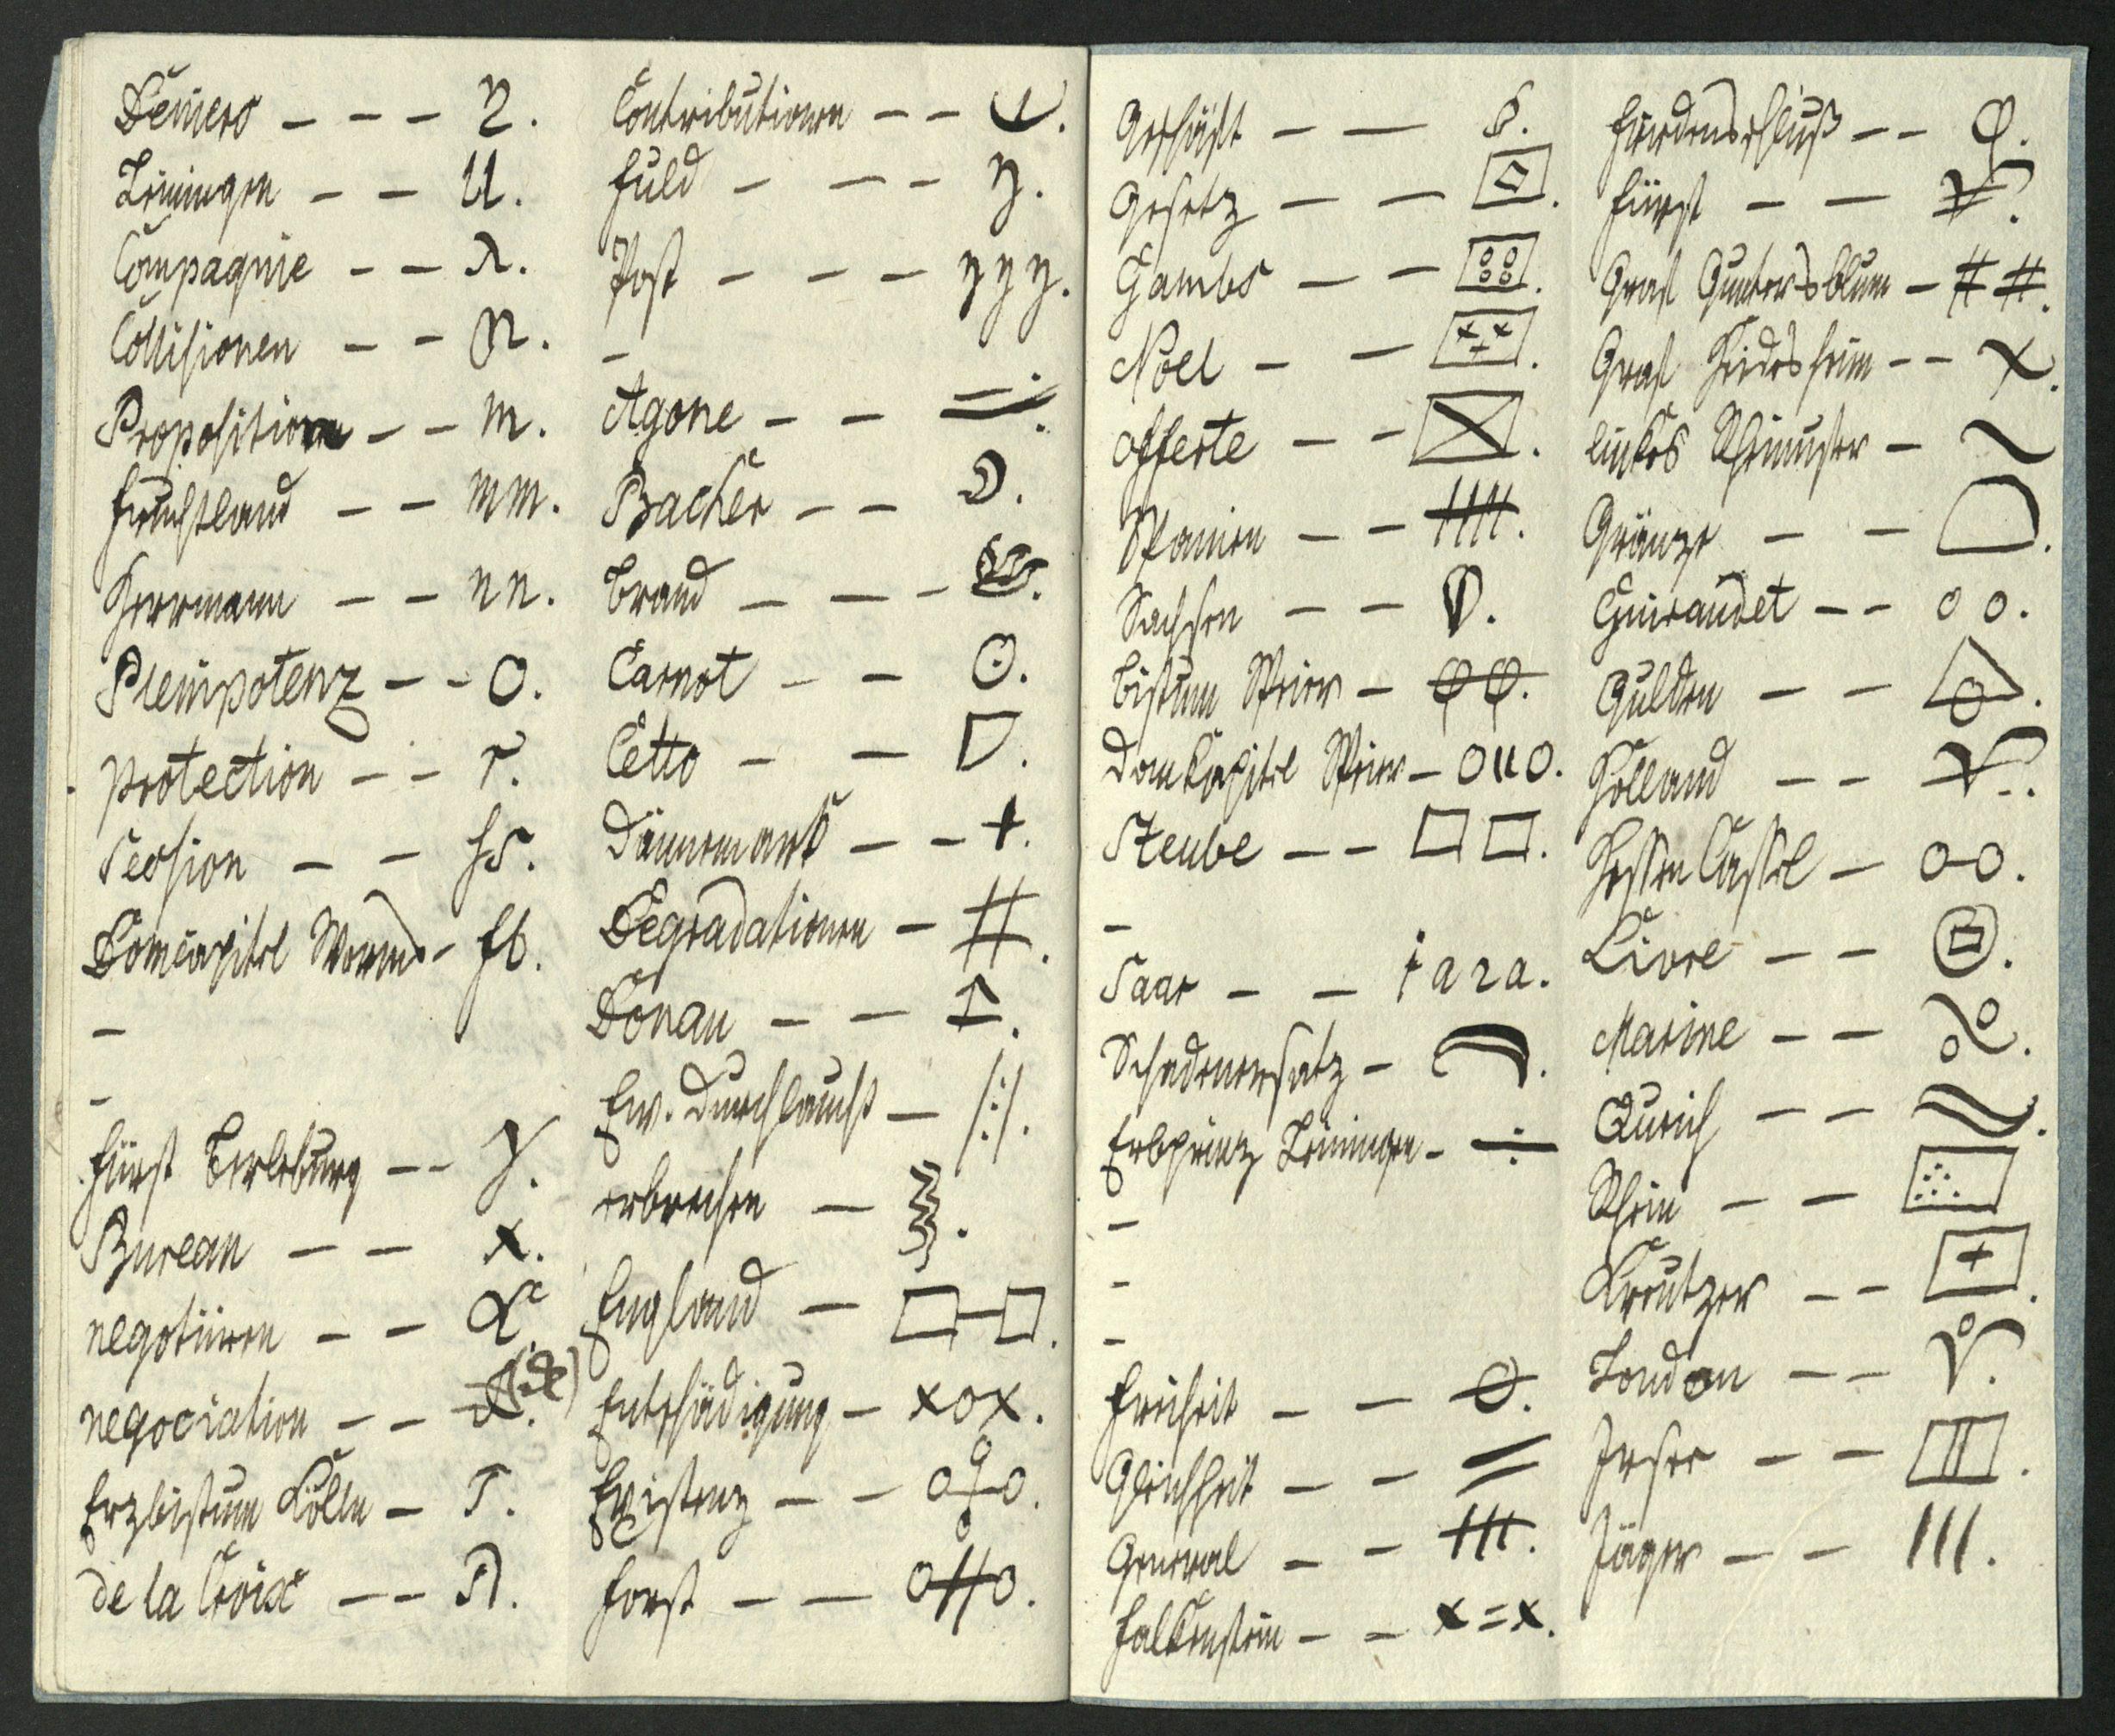 Deniers - - - 2.
Leiningen - - U.
Compagnie - - λ.
Collisionen - - n.
Propositionen - - m.
Fruchtland - - mm.
Herrmann - - nn.
Plenipotenz - - O.
protection - - r.
Session - - ss.
Domcapitel Worms - ſb.
-
-
Fürst Berleburg - - y.
Bureau - - x.
negotiiren - -
negociation - -
Erzbistum Kölln -
de la Croix - -
Contributionen - -
Fuld - - - y.
Post - - - yyy.
-
Agone - -
Bacher - -
Brand - - -
Carnot - - ʘ.
Cetto - -
Dännemark - - +.
Degradationen - #.
Donau - -
Ew. Durchlaucht - /:/.
erbrechen -
England - □-□.
Entschädigung - xox.
Existenz - -
Forst - - o#o.
Geschäft - - 6.
Gesetz - -
Gambs - -
Noel - -
offerte - -
Spanien - -
Sachsen - -
Bistum Speier -
DomKapitel Speier - OuO.
Steube - - □ □.
-
Saar - - iara.
Schadenersatz -
Erbprinz Leiningen - ÷
-
-
-
Freiheit - -
Gleichheit - - =
General - -
Falkenstein - - x=x.
Friedensschluß - -
Fürst - -
Graf Guntersblum - # #.
Graf Heidesheim - - x.
linkes Rheinufer - ~
Gränze - -
Guiraudet - - o o.
Gulden - -
Holland - -
Hessen Cassel - o-o.
Livre - -
Marine - -
Rhein - -
Kreutzer - -
London - -
Jäger - - III.